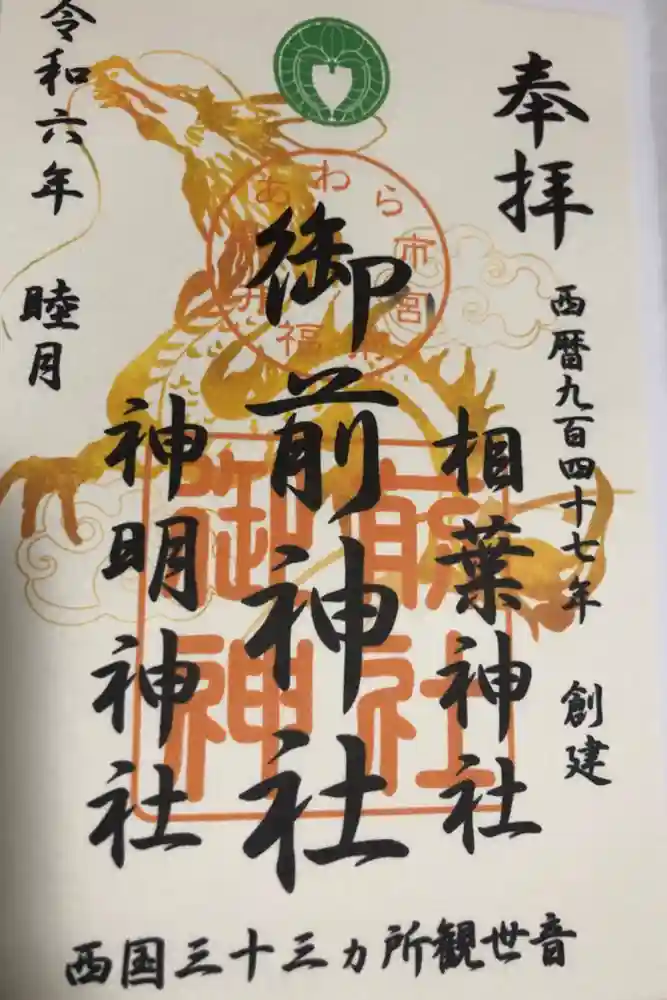 奉拝
西暦九百四十七年 創建
相葉神社
御前神社
神明神社
令和六年 睦月
西国三十三ヵ所観世音
あわら市宮前
福井
御前神社